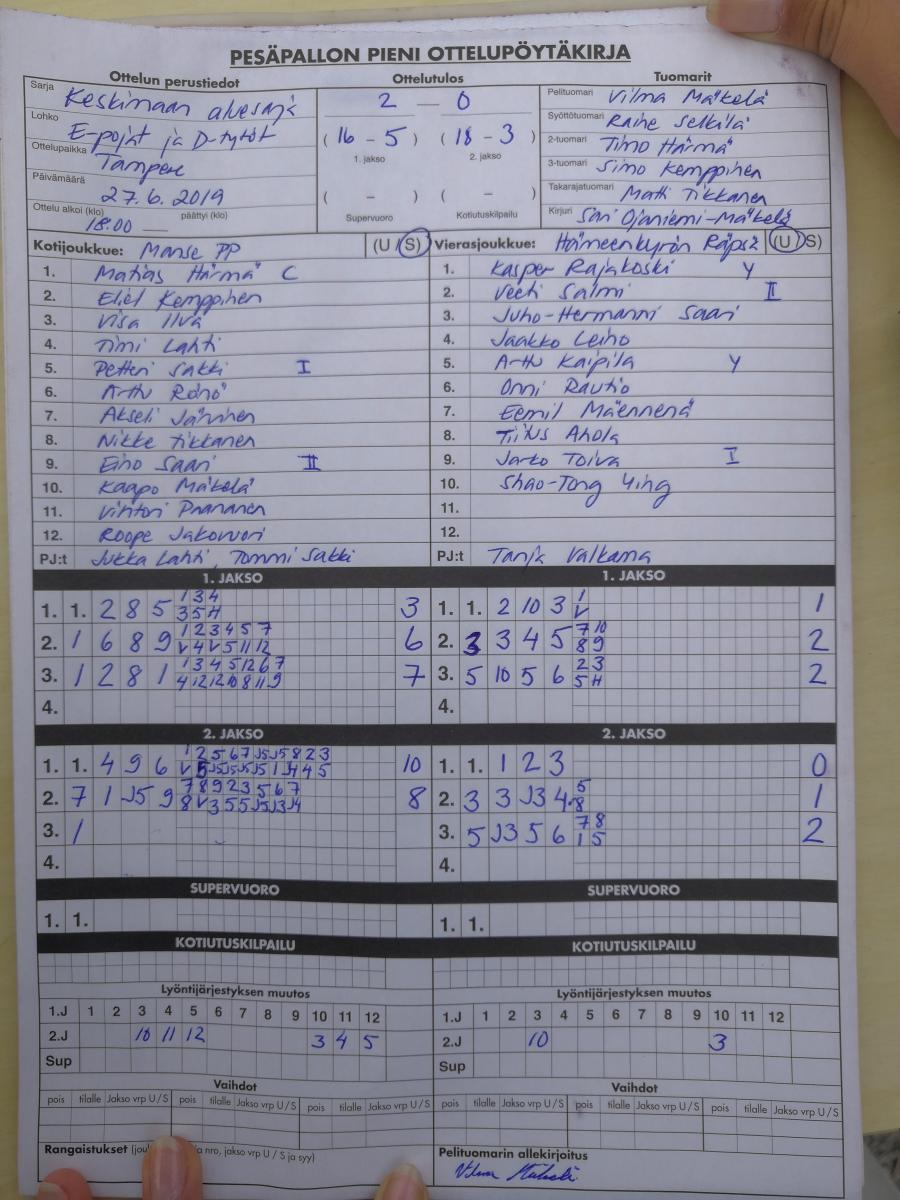 PESÄPALLON PIENI OTTELUPÖYTÄKIRJA
Ottelun perustiedot
Sarja Keskimaan aluesarja
Lohko E-pojat ja D-tytöt
Ottelupaikka Tampere
Päivämäärä 27.6.2019
Ottelu alkoi (klo) 18:00 päättyi (klo)
Ottelutulos
2 — 0
(16 - 5) (18 - 3)
1. jakso 2. jakso
( - ) ( - )
Supervuoro Kotiutuskilpailu
Tuomarit
Pelituomari Vilma Mäkelä
Syöttötuomari Raine Selkilä
2-tuomari Timo Härmä
3-tuomari Simo Kemppinen
Takarajatuomari Matti Tikkanen
Kirjuri Sari Ojaniemi-Mäkelä
Kotijoukkue: Manse PP (U/S)
1. Matias Härmä C
2. Eliel Kemppinen
3. Visa Ilvä
4. Timi Lahti
5. Petteri Sakki I
6. Arttu Rönö
7. Akseli Järvinen
8. Nikke Tikkanen
9. Eino Saari II
10. Kaapo Mäkelä
11. Vihtori Pranänen
12. Roope Jakovuori
PJ:t Jukka Lahti, Tommi Sakki
Vierasjoukkue: Hämeenkyrön Räpsä (U/S)
1. Kasper Rajakoski Y
2. Veeti Salmi II
3. Juho-Hermanni Saari
4. Jaakko Leino
5. Arttu Kaipila Y
6. Onni Rautio
7. Eemil Mäennenä
8. Tiitus Ahola
9. Jarko Toiva I
10. Shao-Tong Ying
11.
12.
PJ:t Tanja Valkama
1. JAKSO
1. 1. 2 8 5 1 3 4 3
3 5 H
2. 1 6 8 9 1 2 3 4 5 7 6
V 4 V 5 11 12
3. 1 2 8 1 1 3 4 5 12 6 7 7
4 12 12 10 8 11 9
4.
1. JAKSO
1. 1. 2 10 3 1 1
V
2. 3 3 4 5 7 10 2
8 9
3. 5 10 5 6 2 3 2
5 H
4.
2. JAKSO
1. 1. 4 9 6 1 2 5 6 7 J5 J5 8 2 3 10
2. 7 1 J5 9 7 8 9 2 3 5 6 7 8
3. 1
4.
2. JAKSO
1. 1. 1 2 3 0
2. 3 3 J3 4 5 1
8
3. 5 J3 5 6 7 8 2
1 5
4.
SUPERVUORO
1. 1.
SUPERVUORO
1. 1.
KOTIUTUSKILPAILU
KOTIUTUSKILPAILU
Lyöntijärjestyksen muutos
1.J 1 2 3 4 5 6 7 8 9 10 11 12
2.J 10 11 12 3 4 5
Sup
Lyöntijärjestyksen muutos
1.J 1 2 3 4 5 6 7 8 9 10 11 12
2.J 10 3
Sup
Vaihdot
pois tilalle Jakso vrp U/S pois tilalle Jakso vrp U/S pois tilalle Jakso vrp U/S
Vaihdot
pois tilalle Jakso vrp U/S pois tilalle Jakso vrp U/S pois tilalle Jakso vrp U/S
Rangaistukset nro, jakso vrp U/S ja syy)
Pelituomarin allekirjoitus